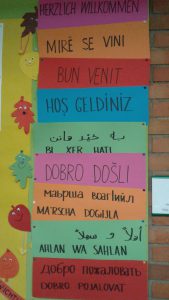 HERZLICH WILLKOMMEN
MIRË SE VINI
BUN VENIT
HOŞ GELDİNİZ
BI XER HATI
DOBRO DOŠLI
МАЬРША ВОГIИЙЛ
MARSCHA DOGIJLA
أهلا و سهلا
AHLAN WA SAHLAN
Добро пожаловать
DOBRO POJALOVAT